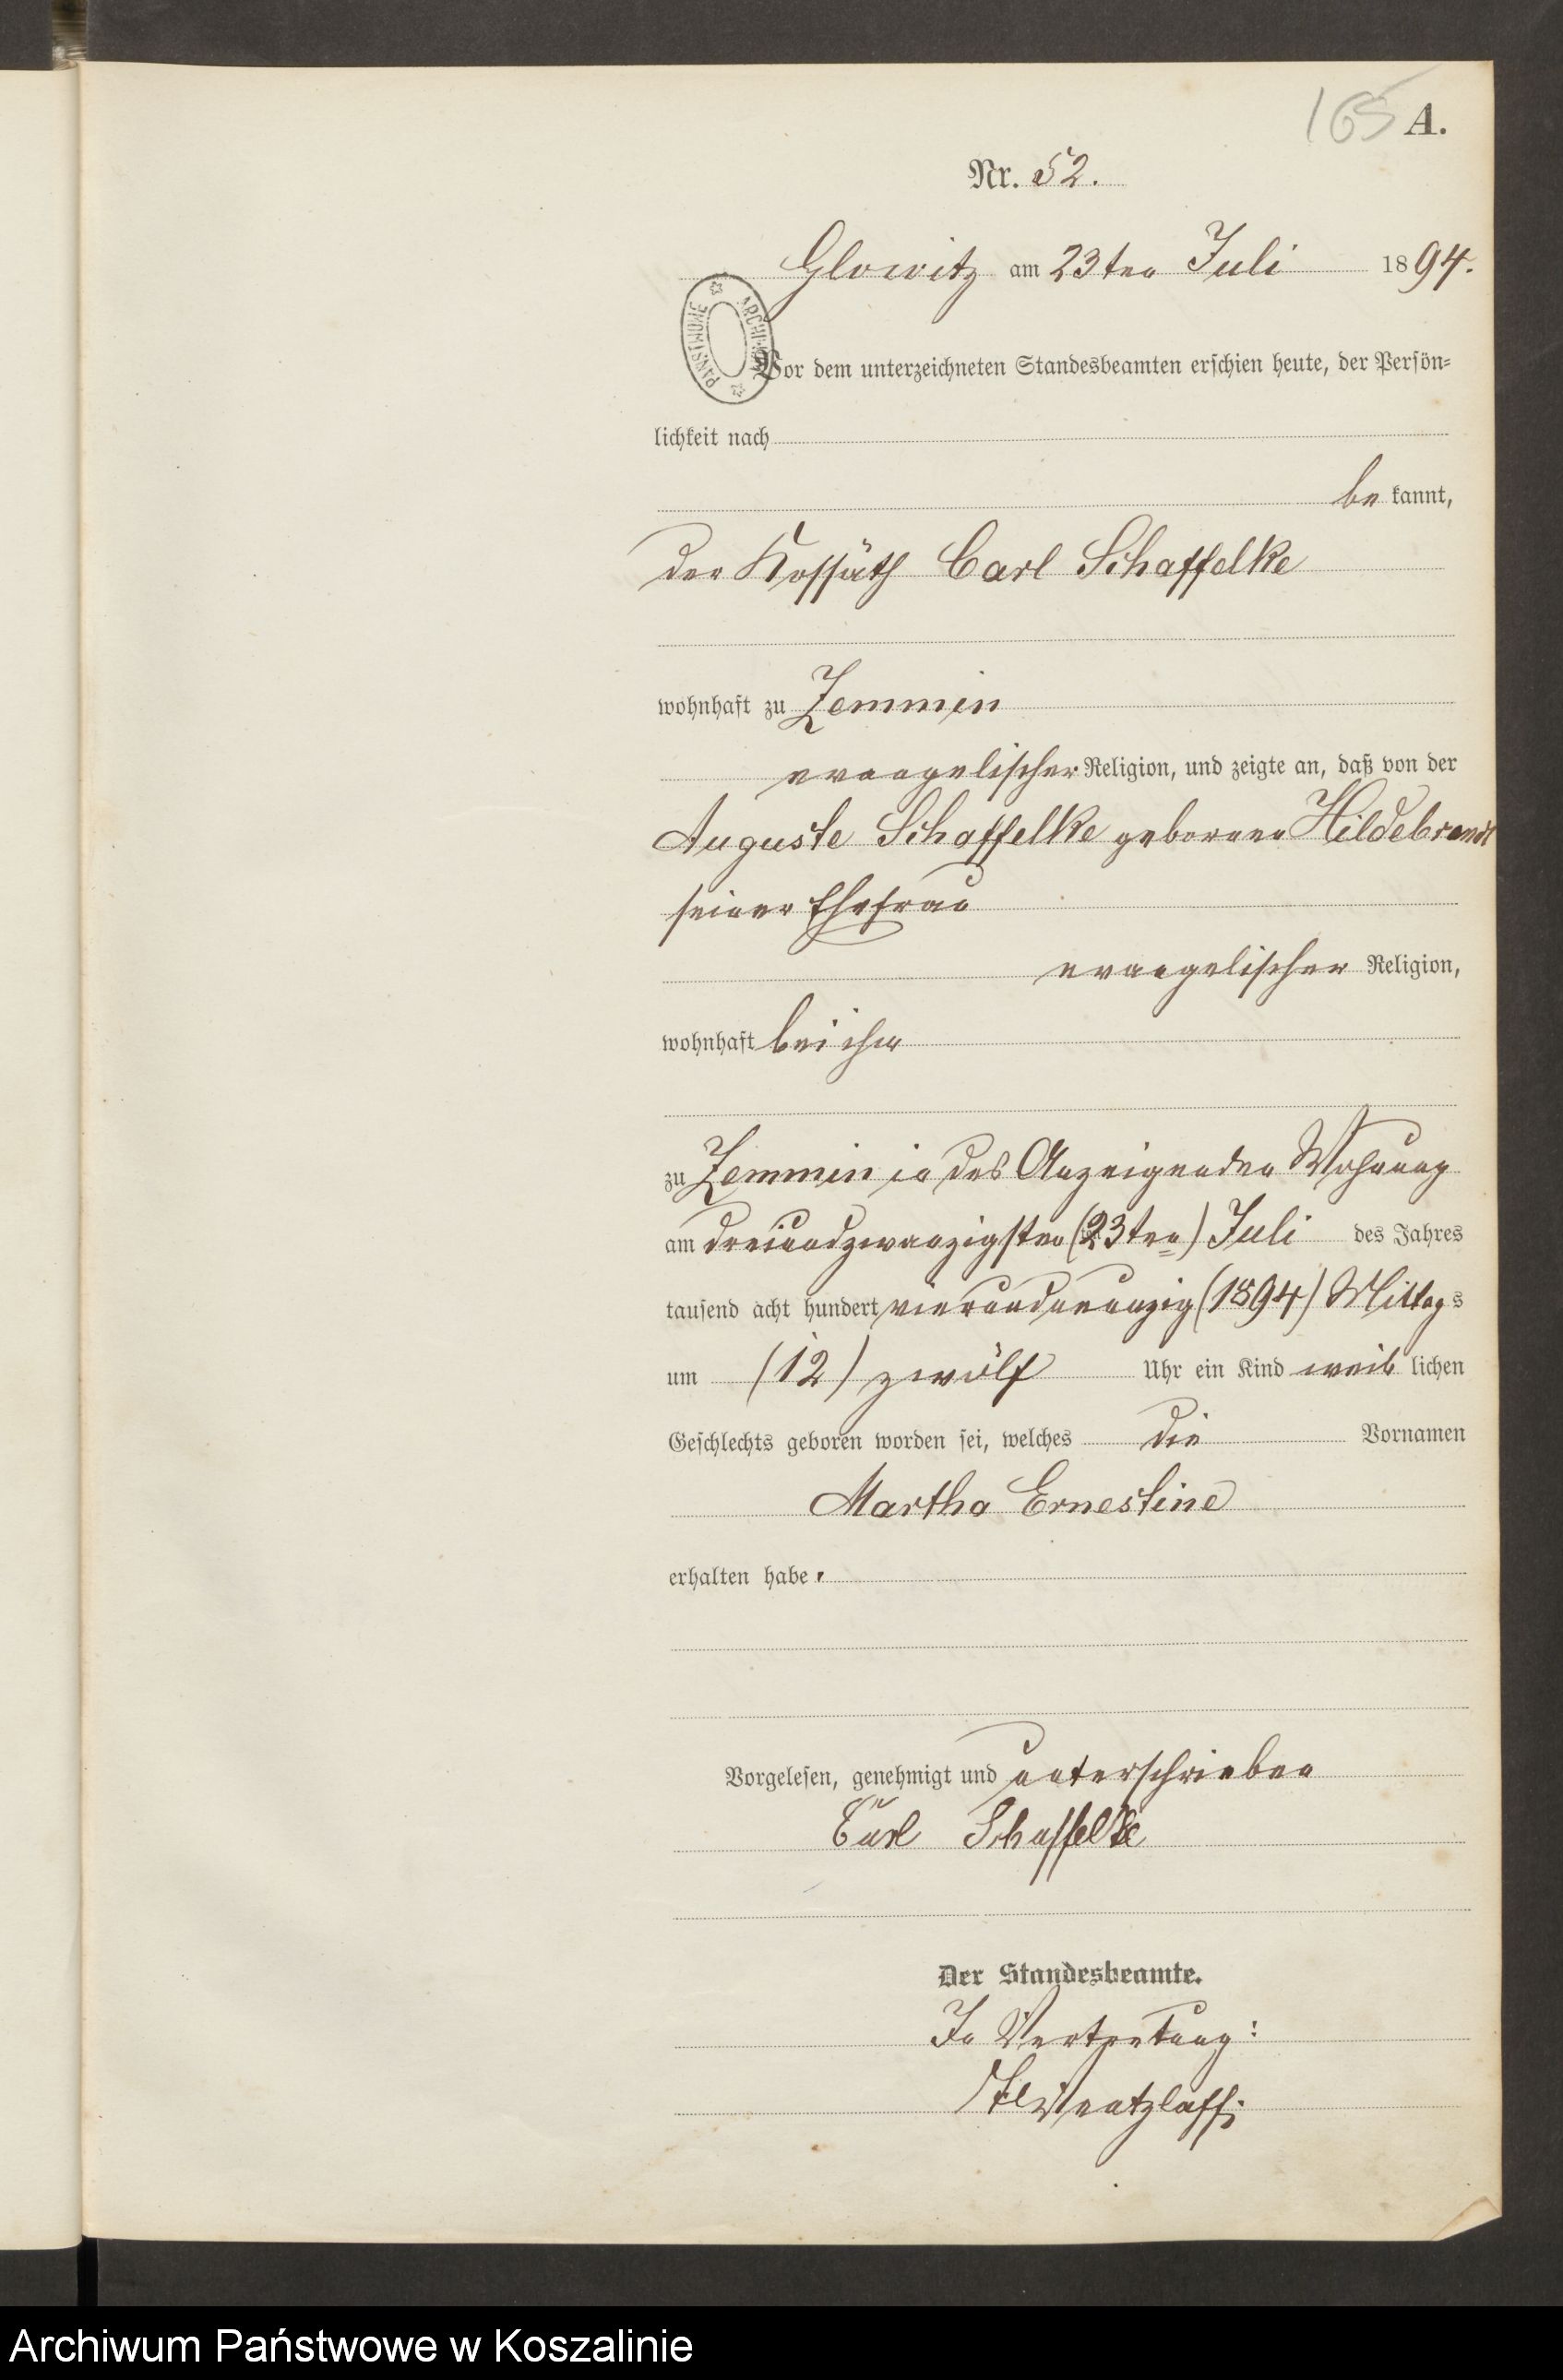 165 A.
Nr. 52.
Glowitz am 23ten Juli 1894.
Vor dem unterzeichneten Standesbeamten erschien heute, der Persön=
lichkeit nach
be kannt,
der Kossäth Carl Schaffelke
wohnhaft zu Zemmin
evangelischer Religion, und zeigte an, daß von der
Auguste Schaffelke geborenen Hildebrandt
seiner Ehefrau
evangelischer Religion,
wohnhaft bei ihm
zu Zemmin in des Anzeigenden Wohnung
am dreiundzwanzigsten (23ten) Juli des Jahres
tausend acht hundert vierundneunzig (1894) Mittags
um (12) zwölf Uhr ein Kind weib lichen
Geschlechts geboren worden sei, welches die Vornamen
Martha Ernestine
erhalten habe.
Vorgelesen, genehmigt und unterschrieben
Carl Schaffelke
Der Standesbeamte.
In Vertretung:
Wentzlaff.
PAŃSTWOWE ARCHIWUM
Archiwum Państwowe w Koszalinie